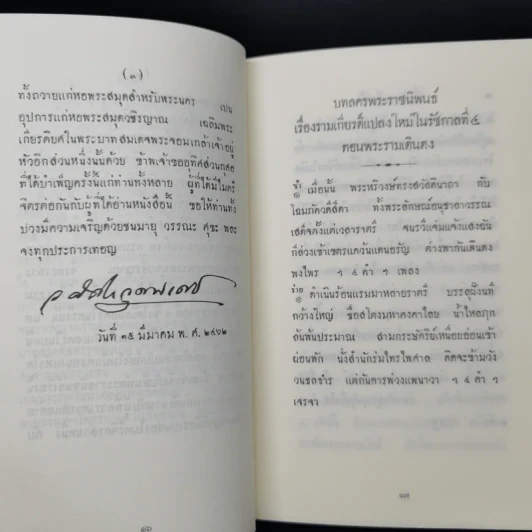 (๓)
ทั้งถวายแก่หอพระสมุดสำหรับพระนคร เปน
อุปการแก่หอพระสมุดวชิรญาณ เฉลิมพระ
เกียรติยศในพระบาทสมเดจพระจอมเกล้าเจ้าอยู่
หัวอีกส่วนหนึ่งนั้นด้วย ข้าพเจ้าขออุทิศส่วนกุศล
ที่ได้บำเพ็ญครั้งนี้แก่ท่านทั้งหลาย ผู้ที่ได้มีไมตรี
จิตรต่อกันกับผู้ที่ได้อ่านหนังสือนี้ ขอให้ท่านทั้ง
ปวงมีความเจริญด้วยชนมายุ วรรณะ ศุขะ พละ
จงทุกประการเทอญ
วันที่ ๑๕ มีนาคม พ.ศ. ๒๔๖๒
๑๖
บทลครพระราชนิพนธ์
เรื่องรามเกียรติ์แปลงใหม่ในรัชกาลที่ ๔
ตอนพระรามเดินดง
ช้า ๑ เมื่อนั้น พระหริวงษ์ทรงสวัสดินาถา กับ
โฉมภัควดีสีดา ทั้งพระลักษณ์อนุชาลาวรรณ
เสด็จตั้งแต่เวลาราตรี จนรวีแจ่มแจ้งแสงฉัน
ก็ล่วงเข้าเขตรแคว้นแดนอรัญ ต่างพากันเดินดง
พงไพร ฯ ๔ คำ ฯ เพลง
ร่าย ๑ ดำเนินร้อนแรมมาหลายราตรี บรรลุถึงนที
กว้างใหญ่ ชื่อสโตงมหาคงคาไลย น้ำไหลฦก
ล้นพ้นประมาณ สามกระษัตริย์เหนื่อยอ่อนเข้า
ผ่อนพัก นั่งสำนักร่มไทรไพศาล คิดจะข้ามวัง
วนชลธาร แต่กันดารพ่วงแพนาวา ฯ ๔ คำ ฯ
เจรจา
๑๗